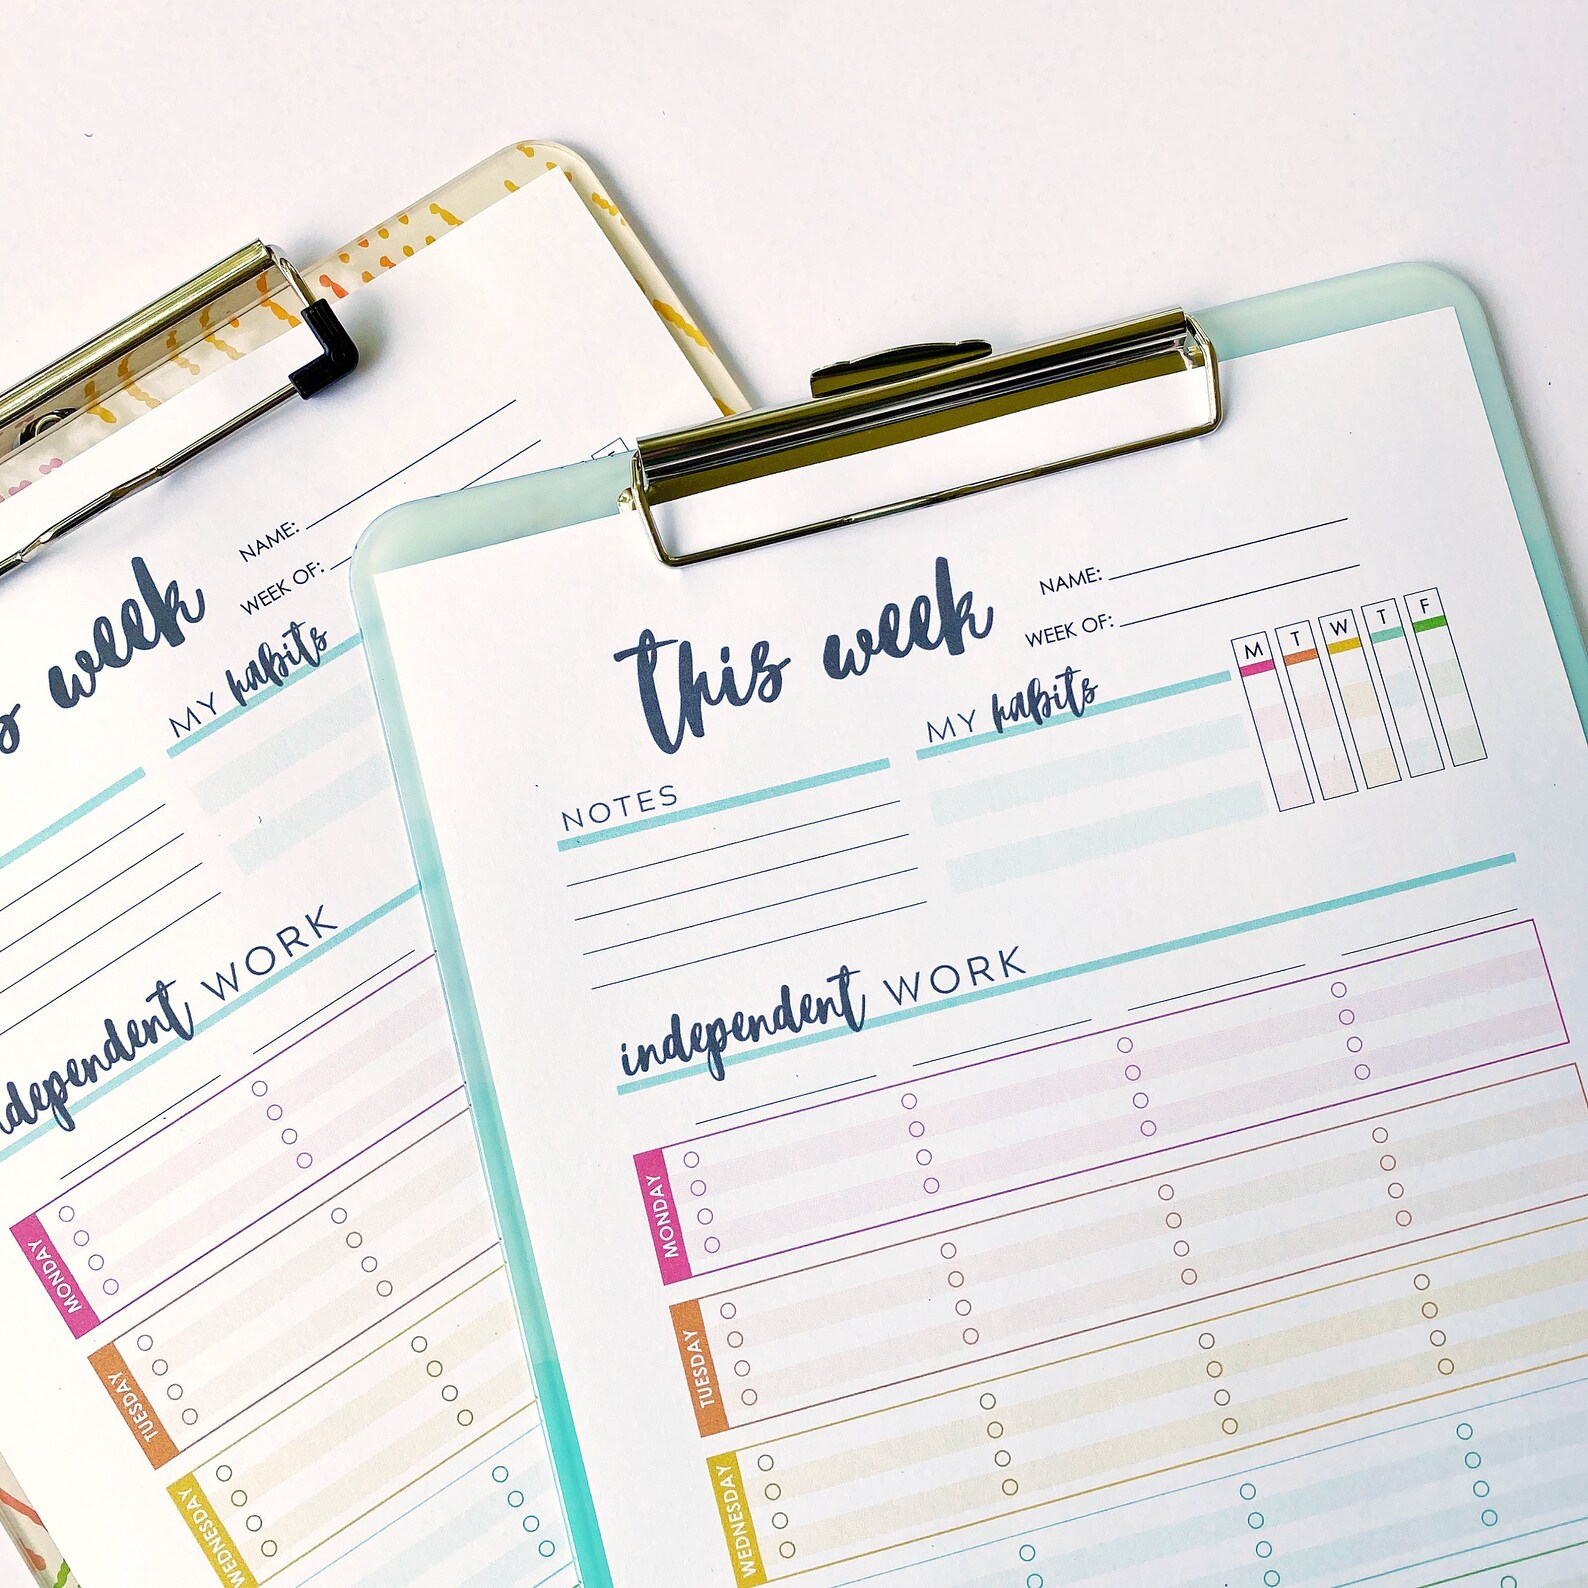 NAME:
WEEK OF:
s week
MY habits
independent WORK
MONDAY
TUESDAY
WEDNESDAY
this week
NAME:
WEEK OF:
MY habits
M T W T F
NOTES
independent WORK
MONDAY
TUESDAY
WEDNESDAY